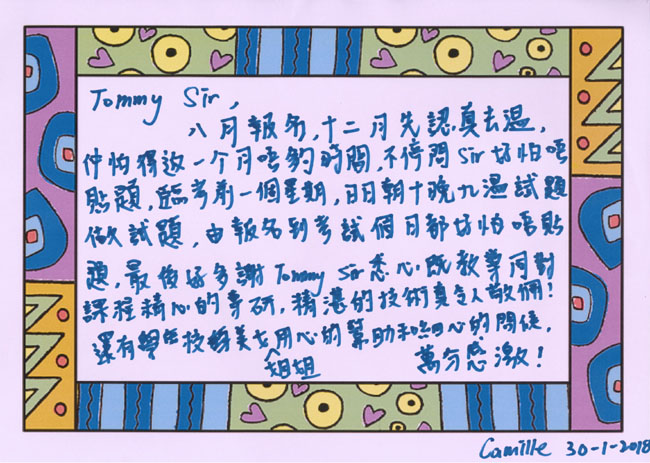 Tommy Sir,
八月報名,十二月先認真去溫,
仲怕得返一个月唔夠時間,不停問Sir好怕唔
貼題,臨考前一個星期,日日朝十晚九溫試題
做試題,由報名到考試個日都好怕唔貼
題,最後好多謝Tommy Sir悉心既教導同對
課程精心的專研,精湛的技術真令人敬佩!
還有美女用心的幫助和細心的關係,
姐姐 萬分感激!
Camille 30-1-2018